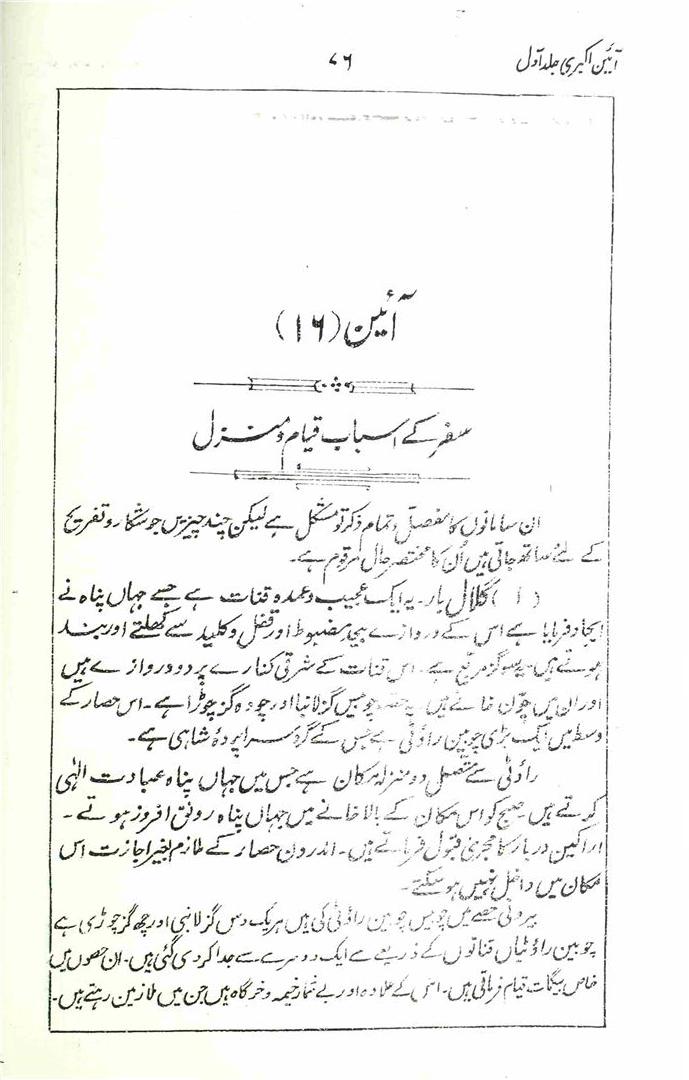 آئین اکبری جلد اول
۷۶
آئین (۱۶)
سفر کے اسباب قیام و منزل
ان سامانوں کا مفصل و تمام ذکر تو مشکل ہے لیکن چند چیزیں جو شکار و تفریح
کے لئے ساتھ جاتی ہیں اُن کا مختصر حال مرقوم ہے۔
(۱) گلال بار۔ یہ ایک عجیب و عمدہ قنات ہے جسے جہاں پناہ نے
ایجاد فرمایا ہے اس کے دروازے بیحد مضبوط اور قفل و کلید سے کھلتے اور بند
ہوتے ہیں۔ یہ سو گز مربع ہے۔ اس قنات کے شرقی کنارے پر دو دروازے ہیں
اور ان میں چوّن خانے ہیں۔ یہ حصہ چوبیس گز لانبا اور چودہ گز چوڑا ہے۔ اس حصار کے
وسط میں ایک بڑی چوبین راؤٹی ہے جس کے گرد سراپردۂ شاہی ہے۔
راؤٹی سے متصل دو منزلہ مکان ہے جس میں جہاں پناہ عبادت الٰہی
کرتے ہیں۔ صبح کو اس مکان کے بالا خانے میں جہاں پناہ رونق افروز ہوتے۔
اراکین دربار کا مجریٰ قبول فرماتے ہیں۔ اندرون حصار کے ملازم بغیر اجازت اس
مکان میں داخل نہیں ہو سکتے۔
بیرونی حصے میں چوبیس چوبین راؤٹی کی ہیں ہر یک دس گز لانبی اور چھ گز چوڑی ہے
چوبین راؤٹیاں قناتوں کے ذریعے سے ایک دوسرے سے جدا کر دی گئی ہیں۔ ان حصوں میں
خاص بیگمات قیام فرماتی ہیں۔ اس کے علاوہ اور بے شمار خیمہ و خرگاہ ہیں جن میں ملازمین رہتے ہیں۔